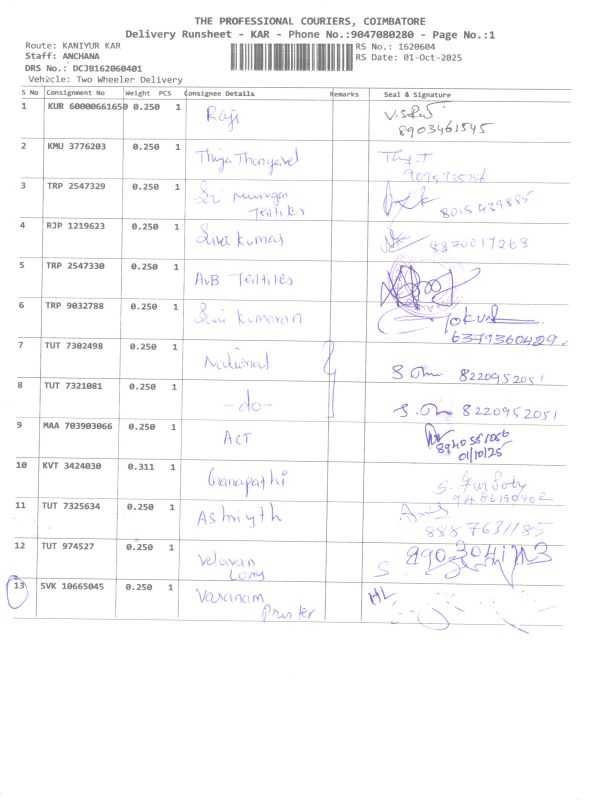 THE PROFESSIONAL COURIERS, COIMBATORE
Delivery Runsheet - KAR - Phone No.:9047080280 - Page No.:1
Route: KANIYUR KAR
RS No.: 1620604
Staff: ANCHANA
RS Date: 01-Oct-2025
DRS No.: DCJB162060401
Vehicle: Two Wheeler Delivery
S No Consignment No Weight PCS Consignee Details Remarks Seal & Signature
1 KUR 60000661650 0.250 1 Raji
8903461545
2 KMU 3776203 0.250 1 Thiya Thangavel
3 TRP 2547329 0.250 1 Sri murugan
Textiles 8015439885
4 RJP 1219623 0.250 1 Siva Kumar 8370017268
5 TRP 2547330 0.250 1 AVB Textiles
6 TRP 9032788 0.250 1 Sri Kumaran
6379360429
7 TUT 7302498 0.250 1 National 8220952051
8 TUT 7321081 0.250 1 -do- 8220952051
9 MAA 703903066 0.250 1 ACT
01/10/25
10 KVT 3424030 0.311 1 Ganapathi
11 TUT 7325634 0.250 1
8887631185
12 TUT 974527 0.250 1 Velavan
13 SVK 10665045 0.250 1 Varanam HL
Printer